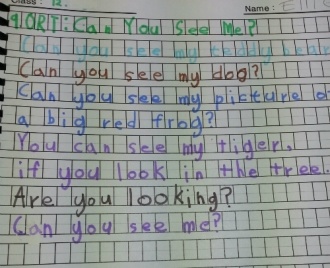 Class: 12.
Name: Elle
9.ORT:Can You See Me?
Can you see my teddy bear
Can you see my dog?
Can you see my picture o
a big red frog?
You can see my tiger,
if you look in the tree.
Are you looking?
Can you see me?